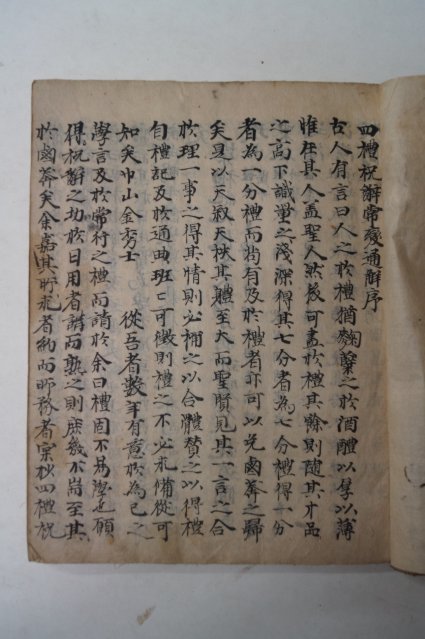 四禮祝辭常變通解序
古人有言曰人之於禮猶麴蘖之於酒醴以厚以薄
惟在其人盖聖人然後可盡於禮其餘則隨其才品
之高下識量之淺深得其七分者爲七分禮得一分
者爲一分禮而猶有及於禮者亦可以免鹵莽之歸
矣是以天叙天秩其軆至大而聖賢見其一言之合
於理一事之得其情則必稱之以合軆賛之以得禮
自禮記及於通典班班可徵則禮之不必求備從可
知矣巾山金秀士 從吾者數年有意於爲己之
學言及於常行之禮而請於余曰禮固不易學也願
得祝辭之切於日用者講而熟之則庶幾不啻至其
於鹵莽矣余嘉其所祝者約而所務者宗抄四禮祝